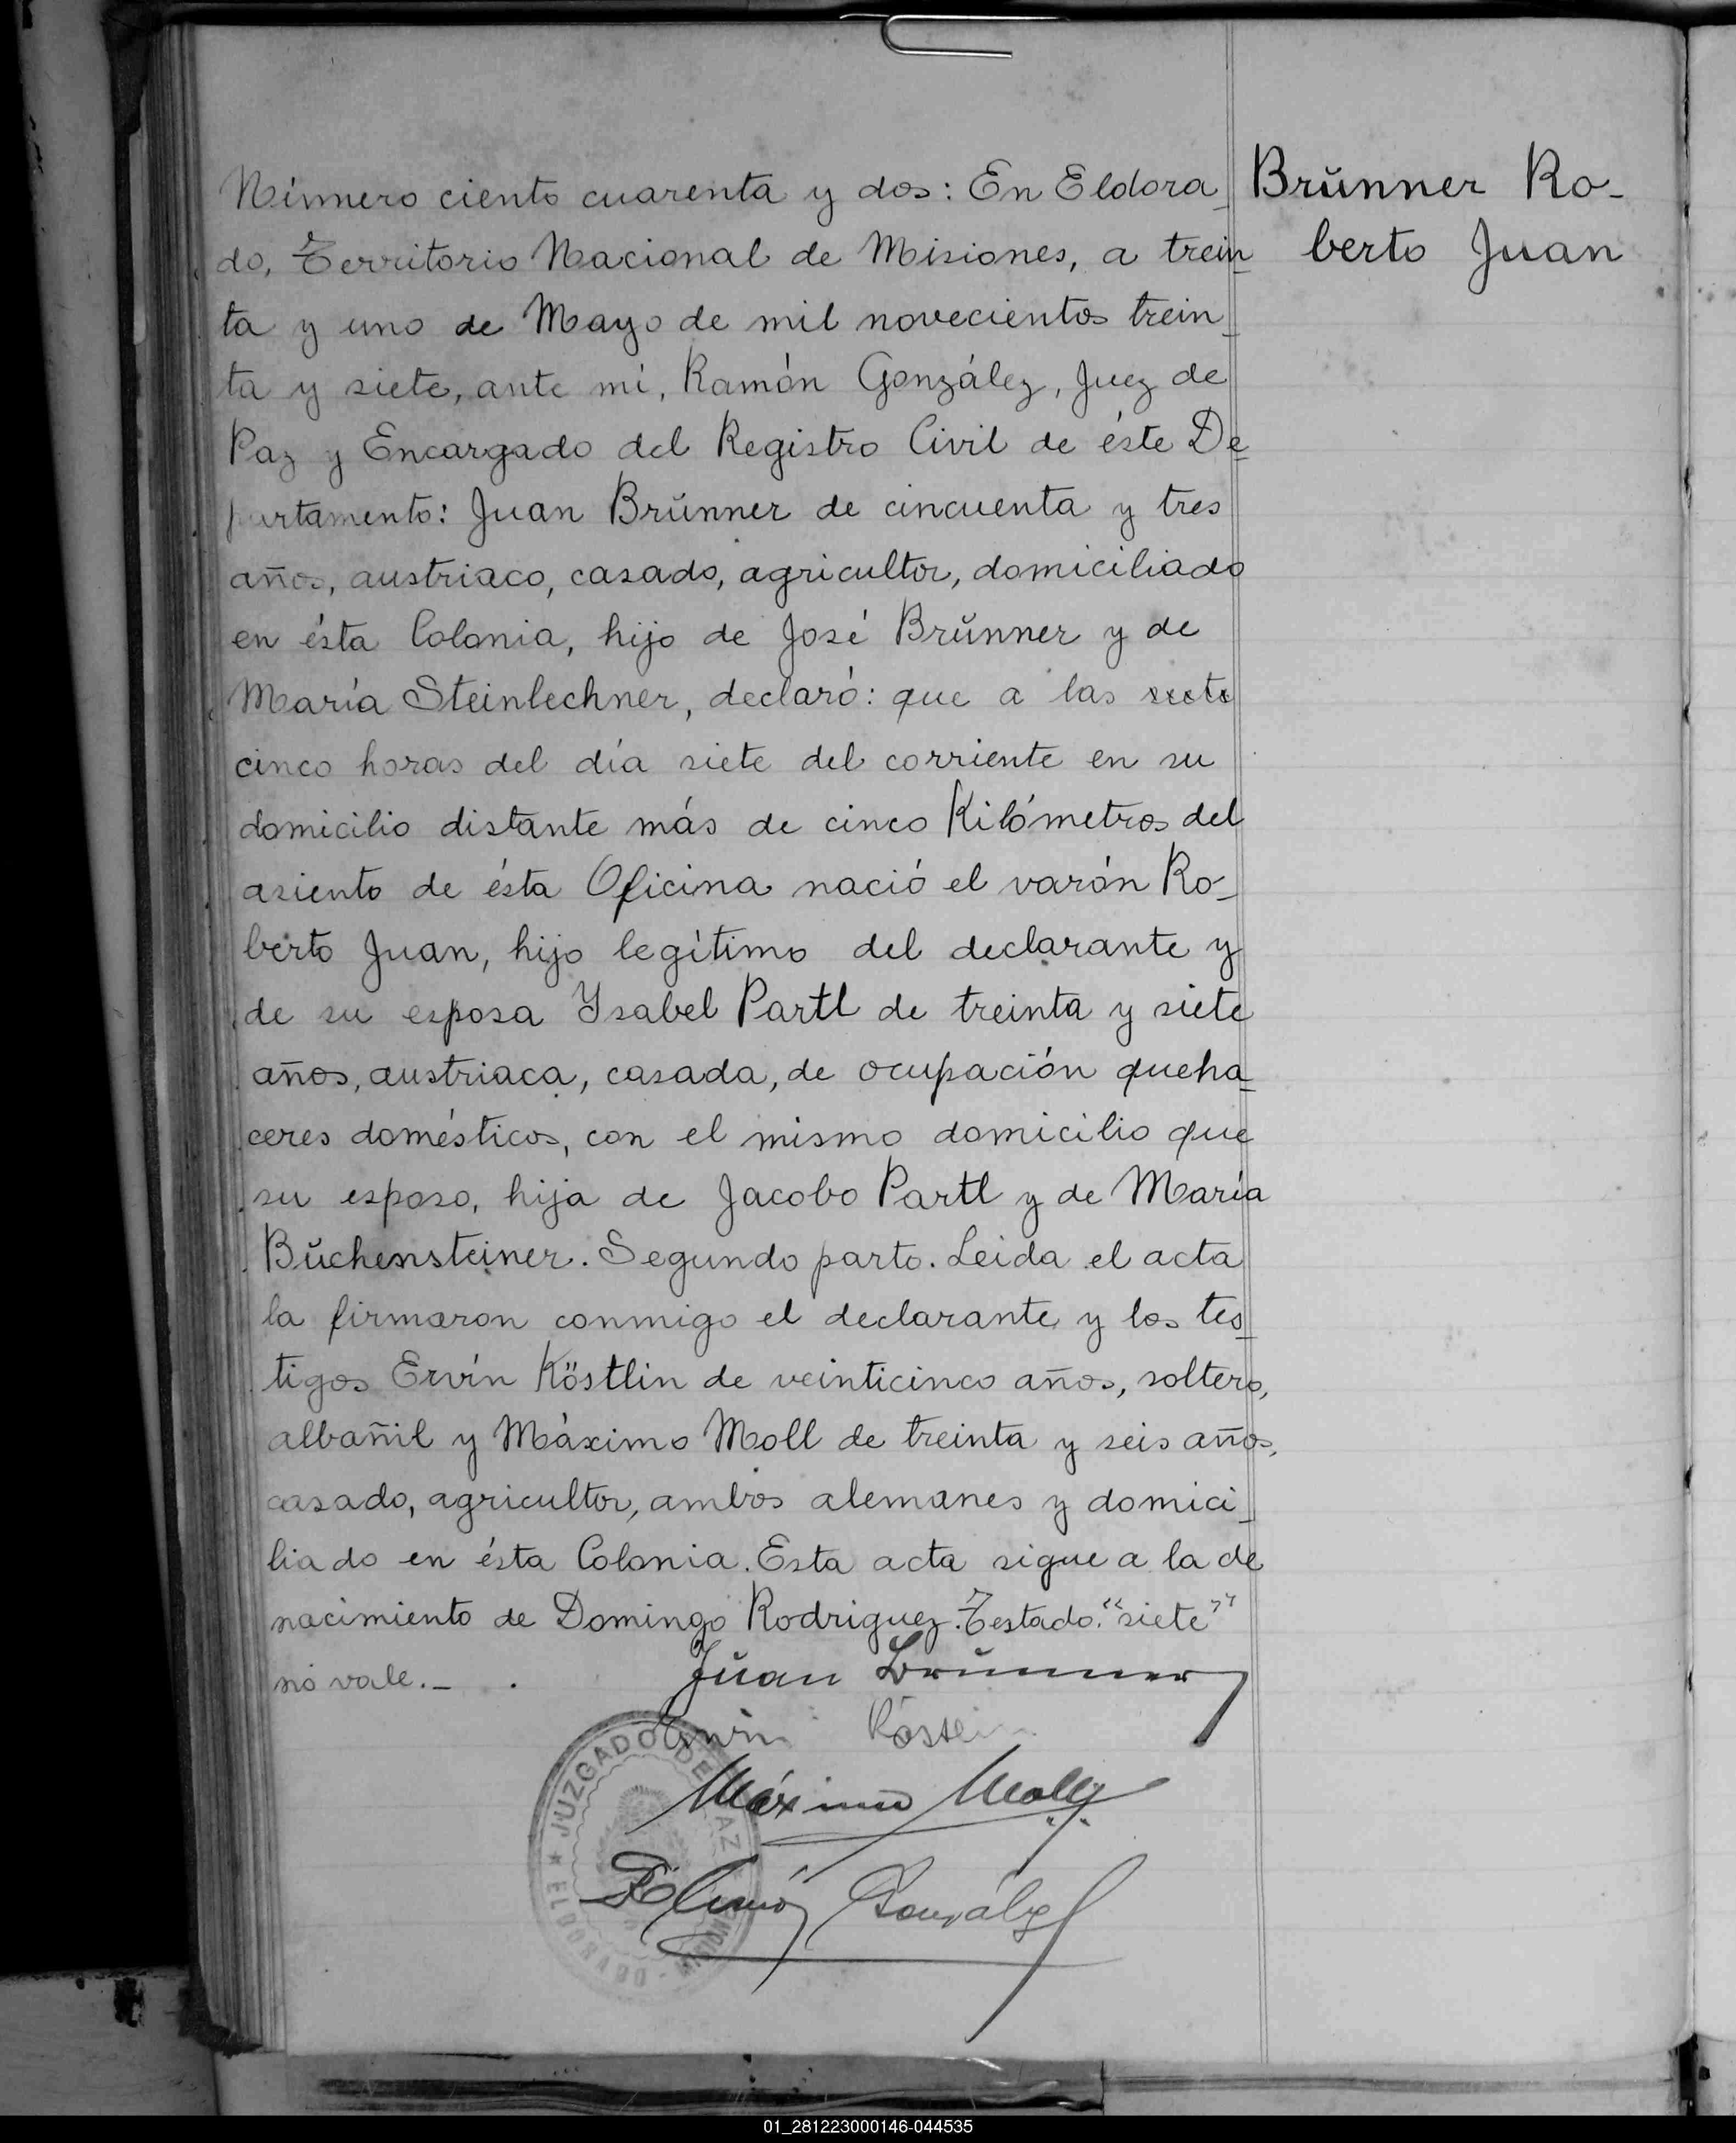 Número ciento cuarenta y dos: En Eldora_
do, Territorio Nacional de Misiones, a trein_
ta y uno de Mayo de mil novecientos trein_
ta y siete, ante mí, Ramón González, Juez de
Paz y Encargado del Registro Civil de éste De_
partamento: Juan Brŭnner de cincuenta y tres
años, austriaco, casado, agricultor, domiciliado
en ésta Colonia, hijo de José Brŭnner y de
María Steinlechner, declaró: que a las siete
cinco horas del día siete del corriente en su
domicilio distante más de cinco Kilómetros del
asiento de ésta Oficina nació el varón Ro_
berto Juan, hijo legítimo del declarante y
de su esposa Ysabel Partl de treinta y siete
años, austriaca, casada, de ocupación queha_
ceres domésticos, con el mismo domicilio que
su esposo, hija de Jacobo Partl y de María
Bŭchensteiner. Segundo parto. Leida el acta
la firmaron conmigo el declarante y los tes_
tigos Ervín Köstlin de veinticinco años, soltero,
albañil y Máximo Moll de treinta y seis años,
casado, agricultor, ambos alemanes y domici_
liado en ésta Colonia. Esta acta sigue a la de
nacimiento de Domingo Rodriguez. Testado: "siete"
nó vale._ .
Brŭnner Ro_
berto Juan
Juan Brŭnner
Máximo Moll
Ramón González
JUZGADO DE PAZ
ELDORADO - MISIONES
01_281223000146-044535